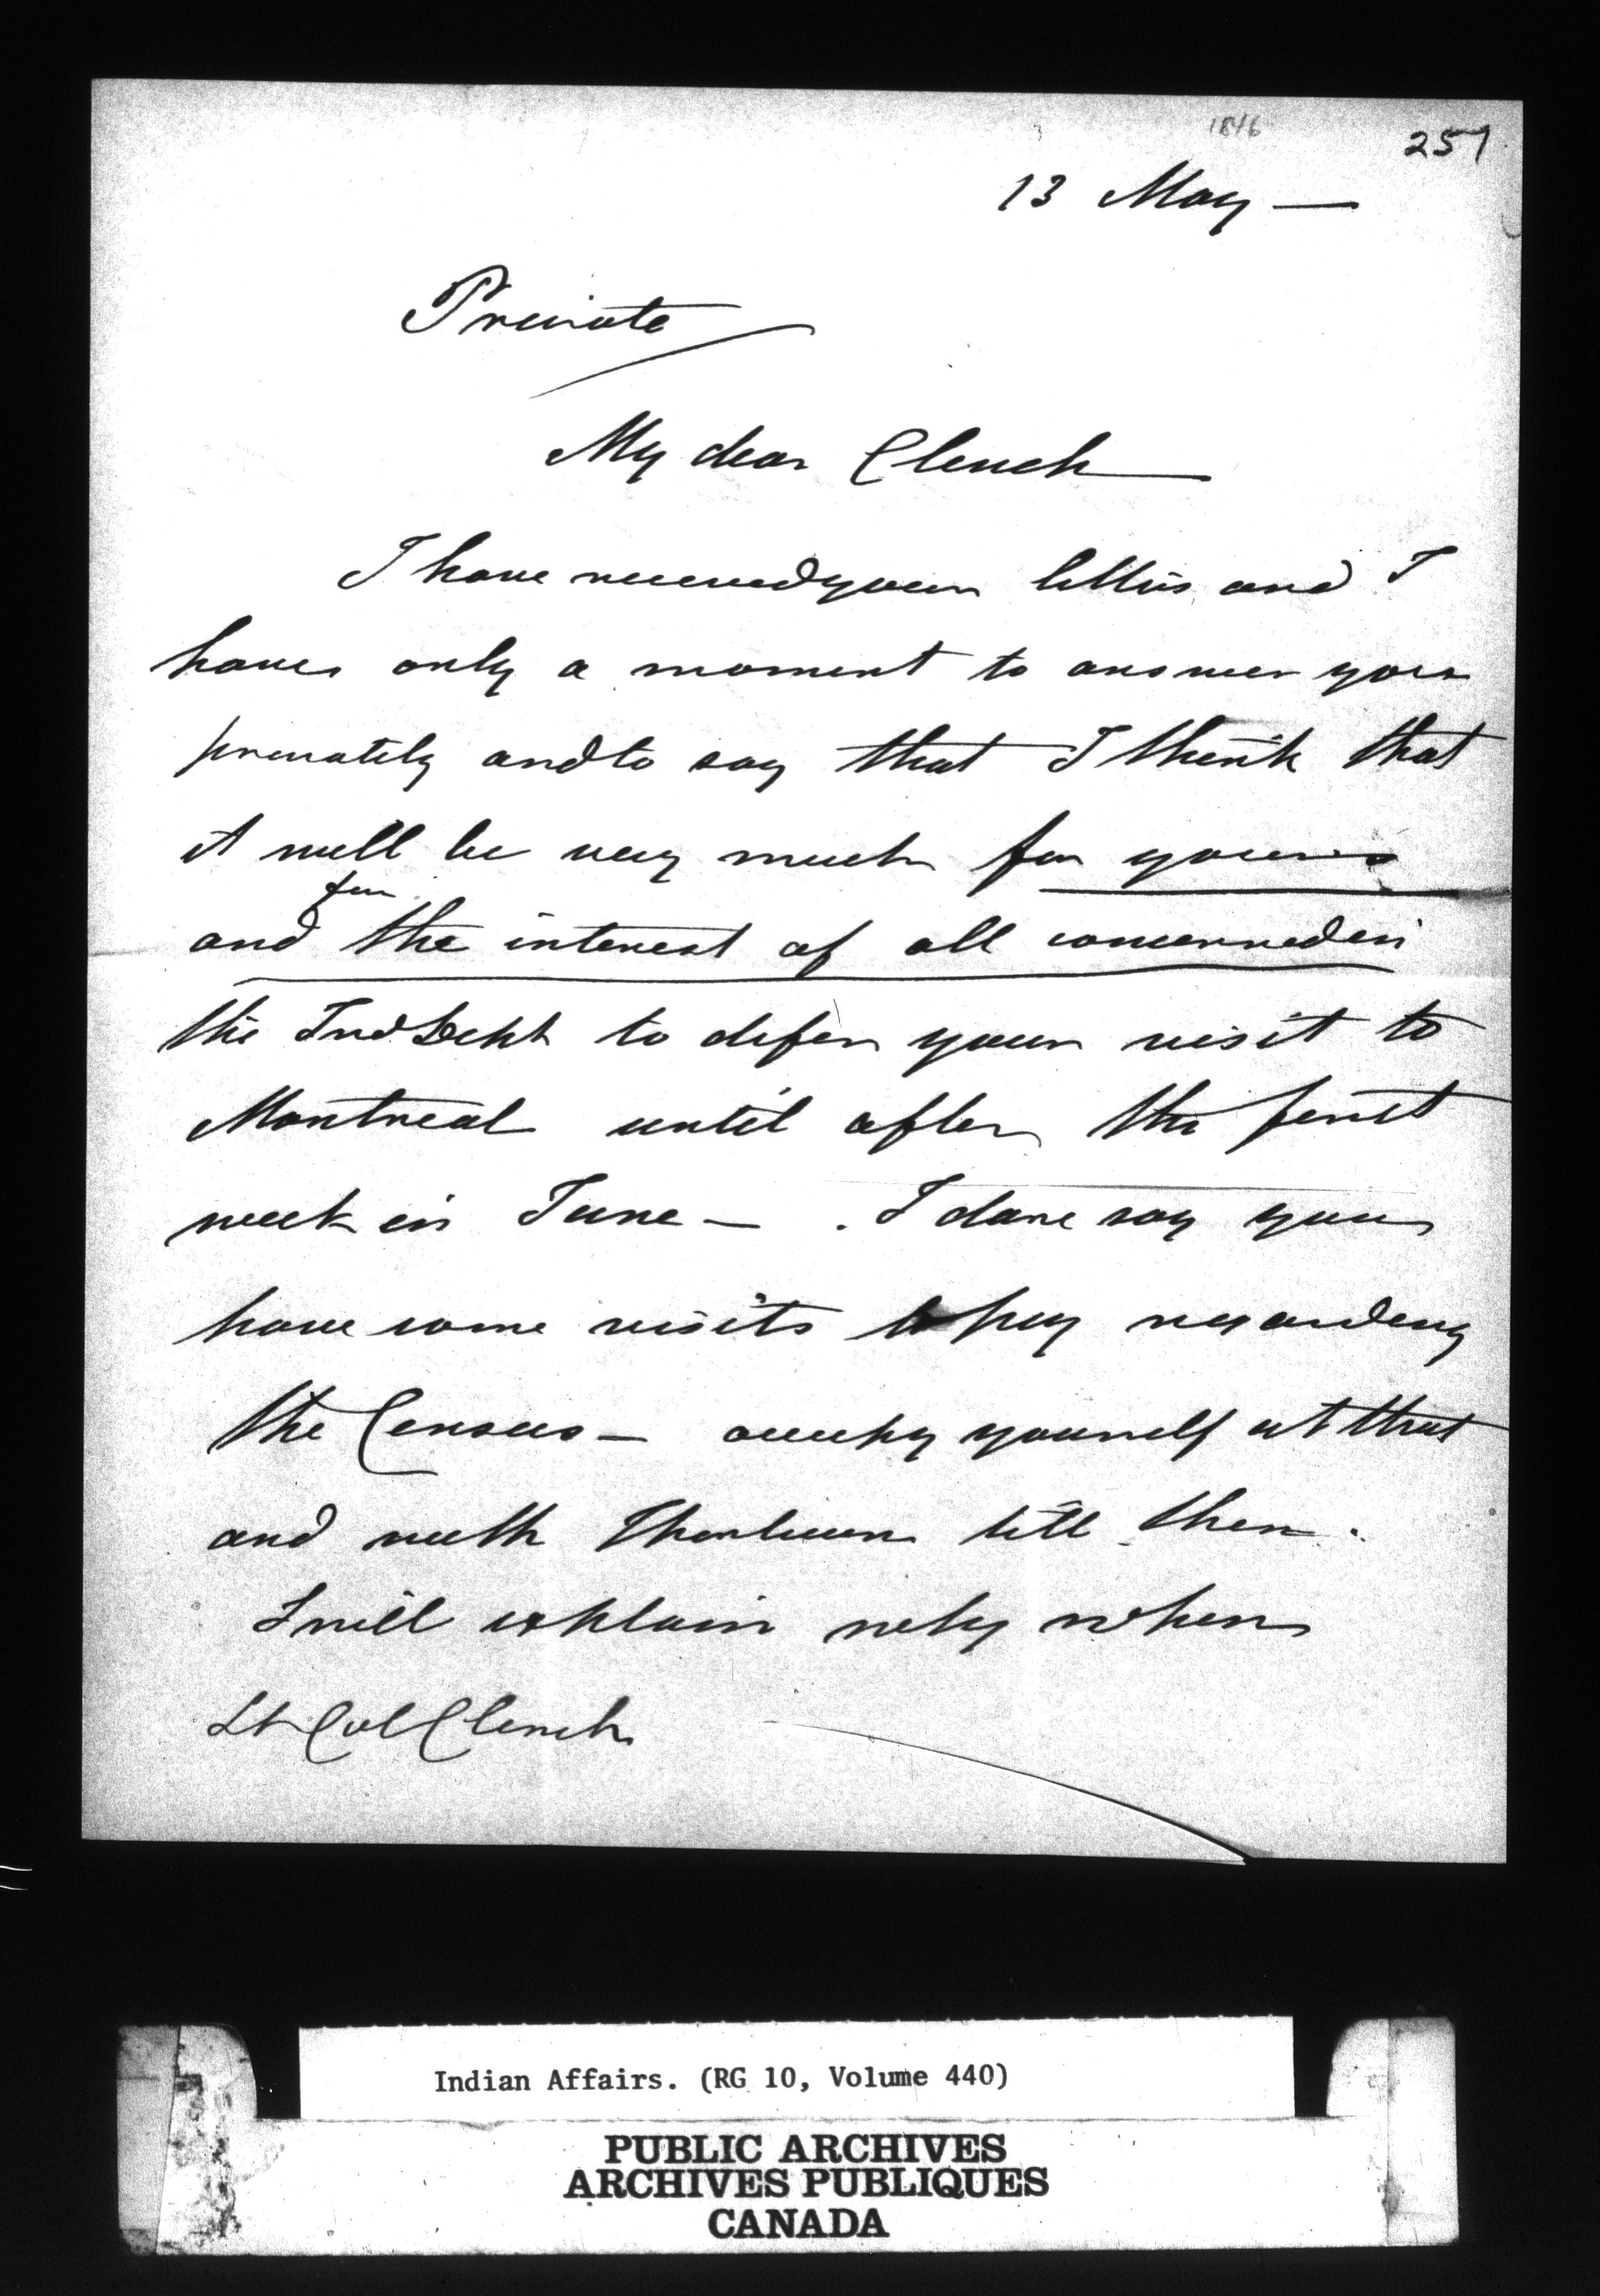 1846
257
13 May —
Private
My dear Clench
I have received your letters and I
have only a moment to answer you
privately and to say that I think that
it will be very much for yours
for
and the interest of all concerned in
the Ind Dept to defer your visit to
Montreal until after the first
week in June — . I dare say you
have some visits to pay regarding
the Census — occupy yourself at that
and with till then .
I will explain why when
Lt Col Clench
Indian Affairs. (RG 10, Volume 440)
PUBLIC ARCHIVES
ARCHIVES PUBLIQUES
CANADA